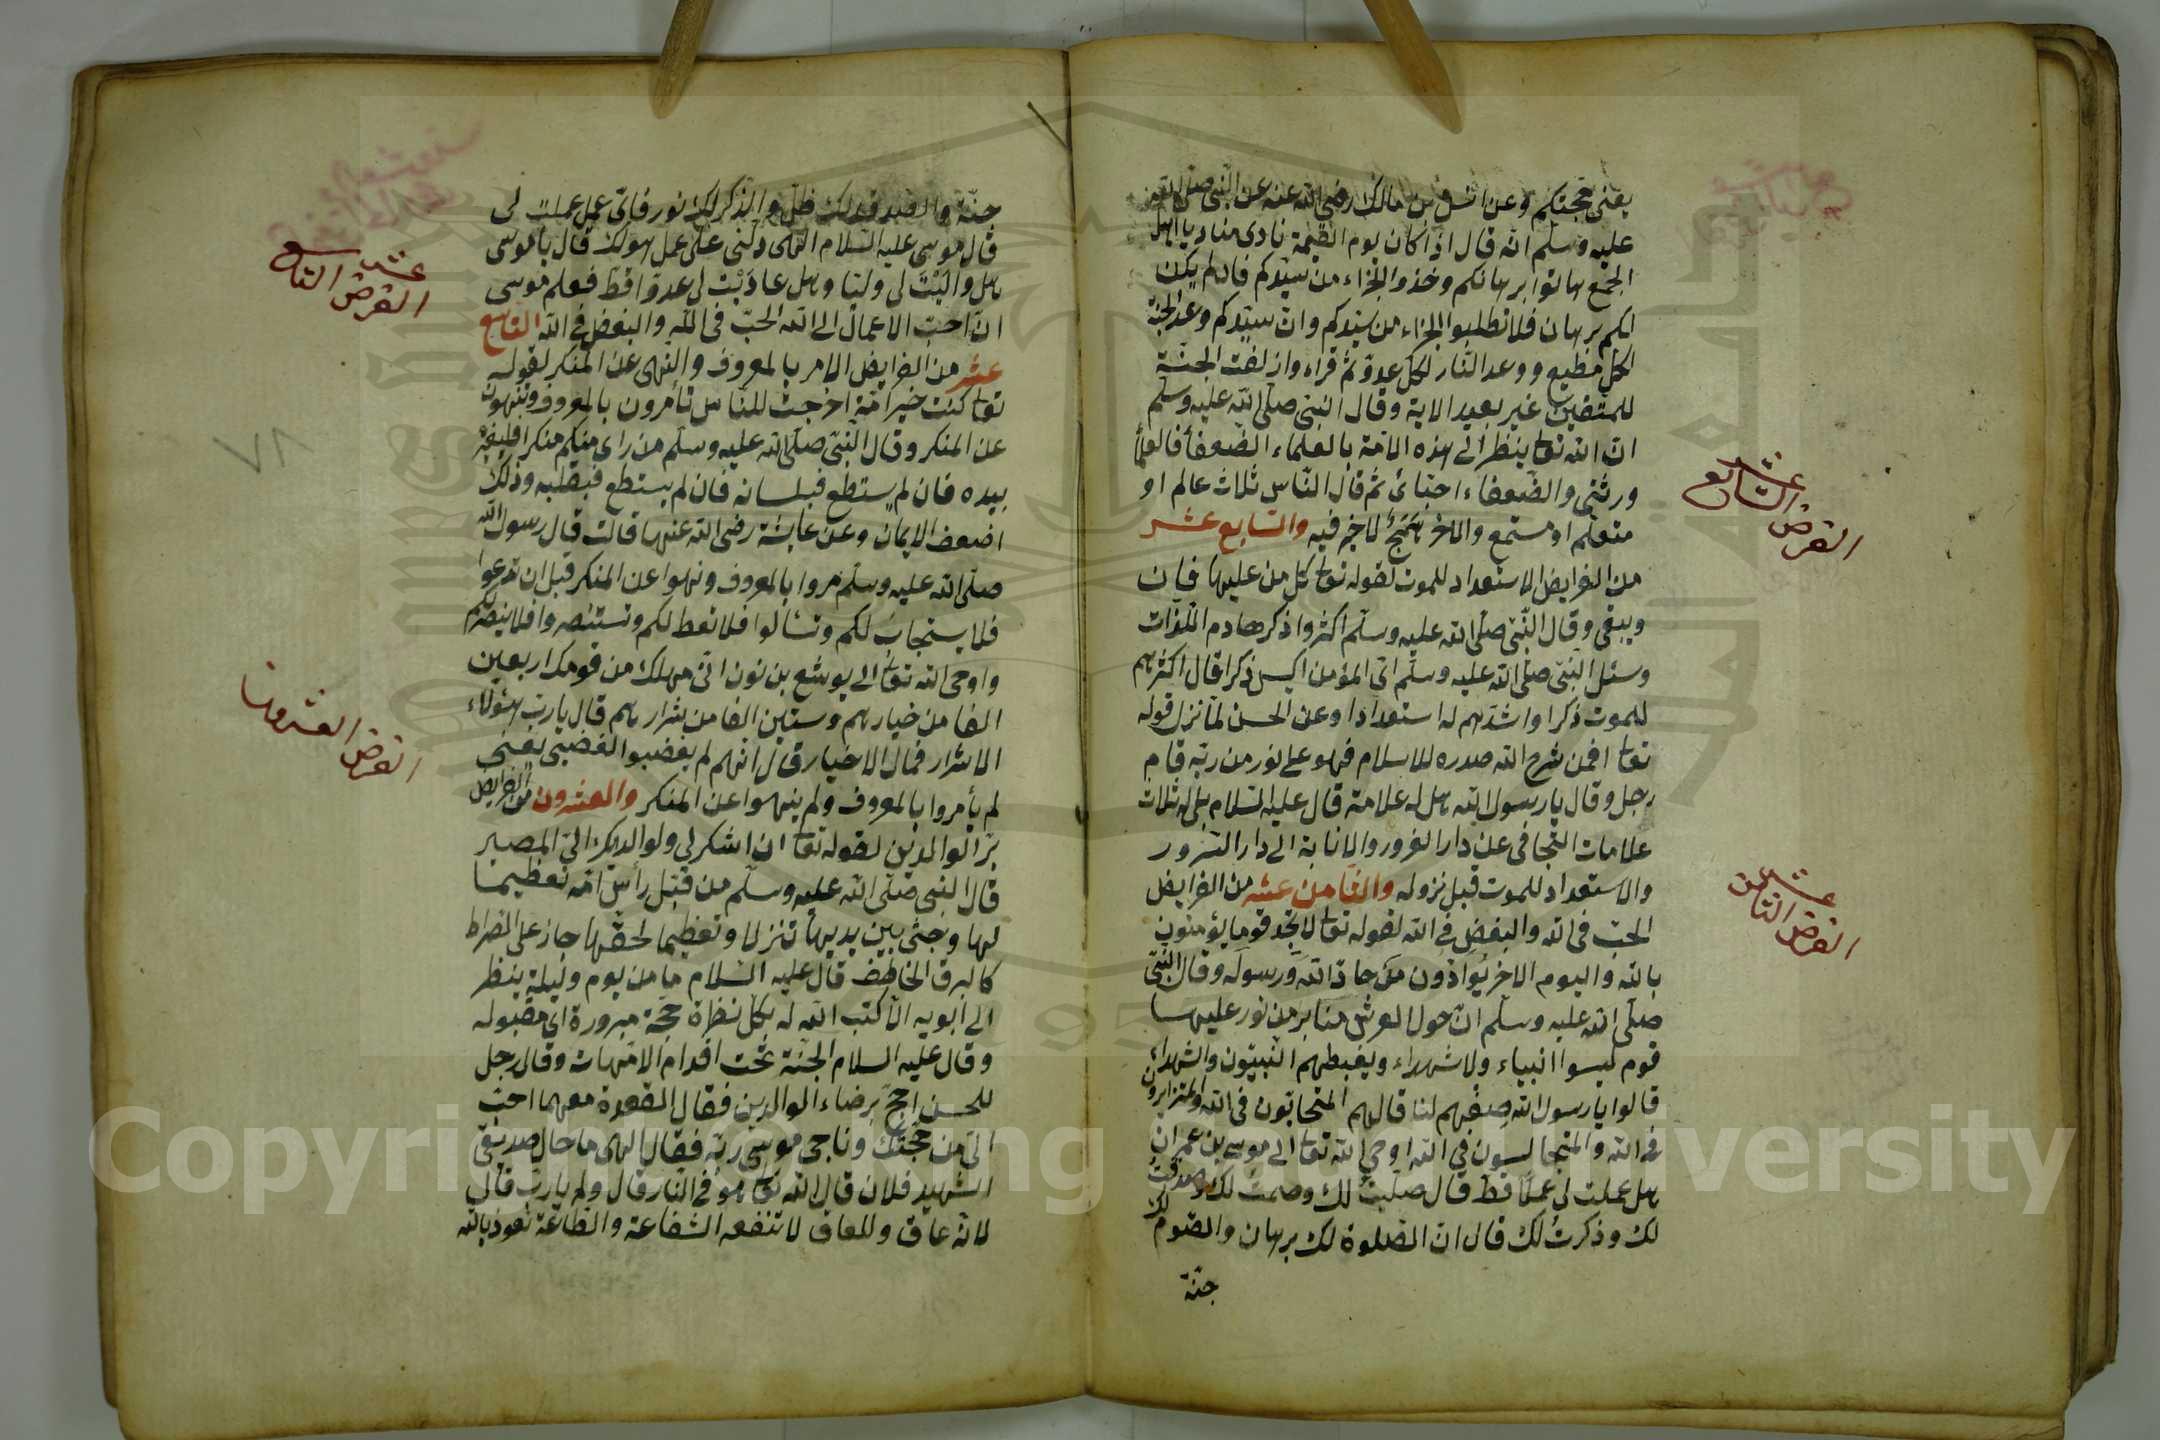 يعنى حجتكم وعن انس بن مالك رضى الله عنه عن النبى صلى الله
عليه وسلم انه قال اذا كان يوم القيمة نادى مناد يا اهل
الجمع هاتوا برهانكم وخذوا الجزاء من سيدكم فان لم يكن
لكم برهان فلا تطلبوا الجزاء من سيدكم وان سيدكم وعد الجنة
لكل مطيع ووعد النار لكل عدو ثم قراء وازلفت الجنة
للمتقين غير بعيد الاية وقال النبى صلى الله عليه وسلم
ان الله تعا ينظر الى هذه الامة بالعلماء الضعفا فالعلما
ورثتى والضعفاء احبائ ثم قال الناس ثلاث عالم او
متعلم او مستمع والاخر همج لاخير فيه والسابع عشر
من الفرايض الاستعداد للموت لقوله تعا كل من عليها فان
ويبقى وقال النبى صلى الله عليه وسلم اكثروا ذكر هادم اللذات
وسئل النبى صلى الله عليه وسلم اى المؤمن اكيس ذكرا قال اكثرهم
للموت ذكرا واشدهم له استعدادا وعن الحسن لما نزل قوله
تعا افمن شرح الله صدره للاسلام فهو على نور من ربه قام
رجل وقال يا رسول الله هل له علامة قال عليه السلام بلى له ثلاث
علامات التجافى عن دار الغرور والانابة الى دار السرور
والاستعداد للموت قبل نزوله والثامن عشر من الفرايض
الحب فى الله والبغض فى الله لقوله تعا لا تجد قوما يؤمنون
بالله واليوم الاخر يوادون من حاد الله ورسوله وقال النبى
صلى الله عليه وسلم ان حول العرش منابر من نور عليها
قوم ليسوا انبياء ولا شهداء ويغبطهم النبيون والشهداء
قالوا يا رسول الله صفهم لنا قال هم المتحابون فى الله والمتزاورون
فى الله والمتجالسون فى الله اوحى الله تعا الى موسى بن عمران
هل عملت لى عملا قط قال صليت لك وصمت لك وصدقت لك
لك وذكرت لك قال ان الصلوة لك برهان والصوم
جنة
الفرض السابع عشر
الفرض الثامن عشر
جنة والصدقة لك ظل والذكر لك نور فاى عمل عملت لى
قال موسى عليه السلام الهى دلنى على عمل هو لك قال يا موسى
هل واليت لى وليا وهل عاديت لى عدوا قط فعلم موسى
ان احب الاعمال الى الله الحب فى الله والبغض فى الله التاسع
عشر من الفرايض الامر بالمعروف والنهى عن المنكر لقوله
تعا كنت خير امة اخرجت للناس تأمرون بالمعروف وتنهون
عن المنكر وقال النبى صلى الله عليه وسلم من راى منكم منكرا فليغير
بيده فان لم يستطع فبلسانه فان لم يستطع فبقلبه وذلك
اضعف الايمان وعن عايشة رضى الله عنها قالت قال رسول الله
صلى الله عليه وسلم مروا بالمعروف ونهوا عن المنكر قبل ان تدعوا
فلا يستجاب لكم وتسالوا فلا تعط لكم وتستنصروا فلا ينصركم
واوحى الله تعا الى يوشع بن نون انى مهلك من قومك اربعين
الفا من خيارهم وستين الفا من شرارهم قال يا رب هؤلاء
الاشرار فما ل الاخيار قال انهم لم يغضبوا الغضبى يعنى
لم يأمروا بالمعروف ولم ينهوا عن المنكر والعشرون من الفرايض
بر الوالدين لقوله تعا ان اشكر لى ولوالديك الى المصير
قال النبى صلى الله عليه وسلم من قبل رأس امه تعظيما
لها وجثى بين يديها تنزلا وتعظيما لحقها جاز على الصراط
كالبرق الخاطف قال عليه السلام ما من يوم وليلة ينظر
الى ابويه الا كتب الله له بكل نظرة حجة مبرورة اى مقبوله
وقال عليه السلام الجنة تحت اقدام الامهات وقال رجل
للحسن احج برضاء الوالدين فقال القعدة معهما احب
الى من حجتك وناجى موسى ربه فقال الهى ما حال صديقى
الشهيد فلان قال الله تعا هو فى النار قال ولم يا رب قال
لانه عاق وللعاق لا تنفعه الشفاعة والطاعة نعوذ بالله
الفرض التاسع عشر
٧٨
الفرض العشرون
Copyright © King Saud University